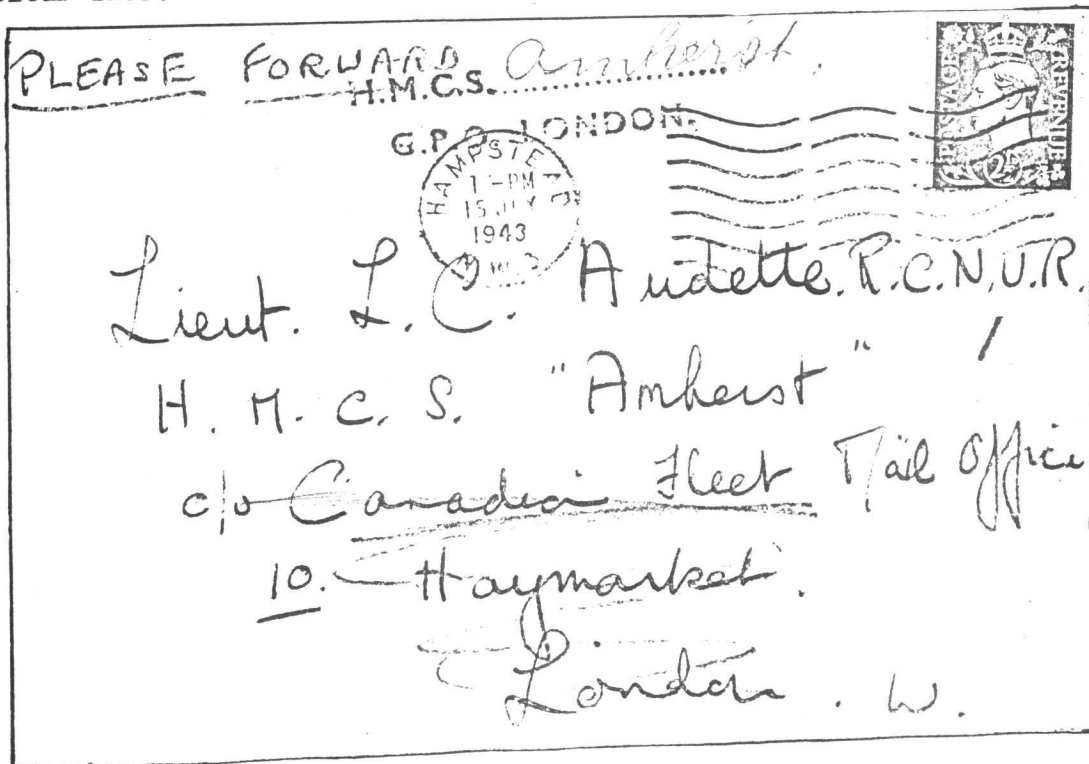 PLEASE FORWARD Amherst.
H.M.C.S.
G.P.O. LONDON.
HAMPSTEAD
1 - PM
15 JLY
1943
N.W.3
POSTAGE REVENUE
2
Lieut. L. C. Audette. R.C.N.V.R.
H. M. C. S. "Amherst"
c/o Canadian Fleet Mail Office
10. Haymarket.
London. W.